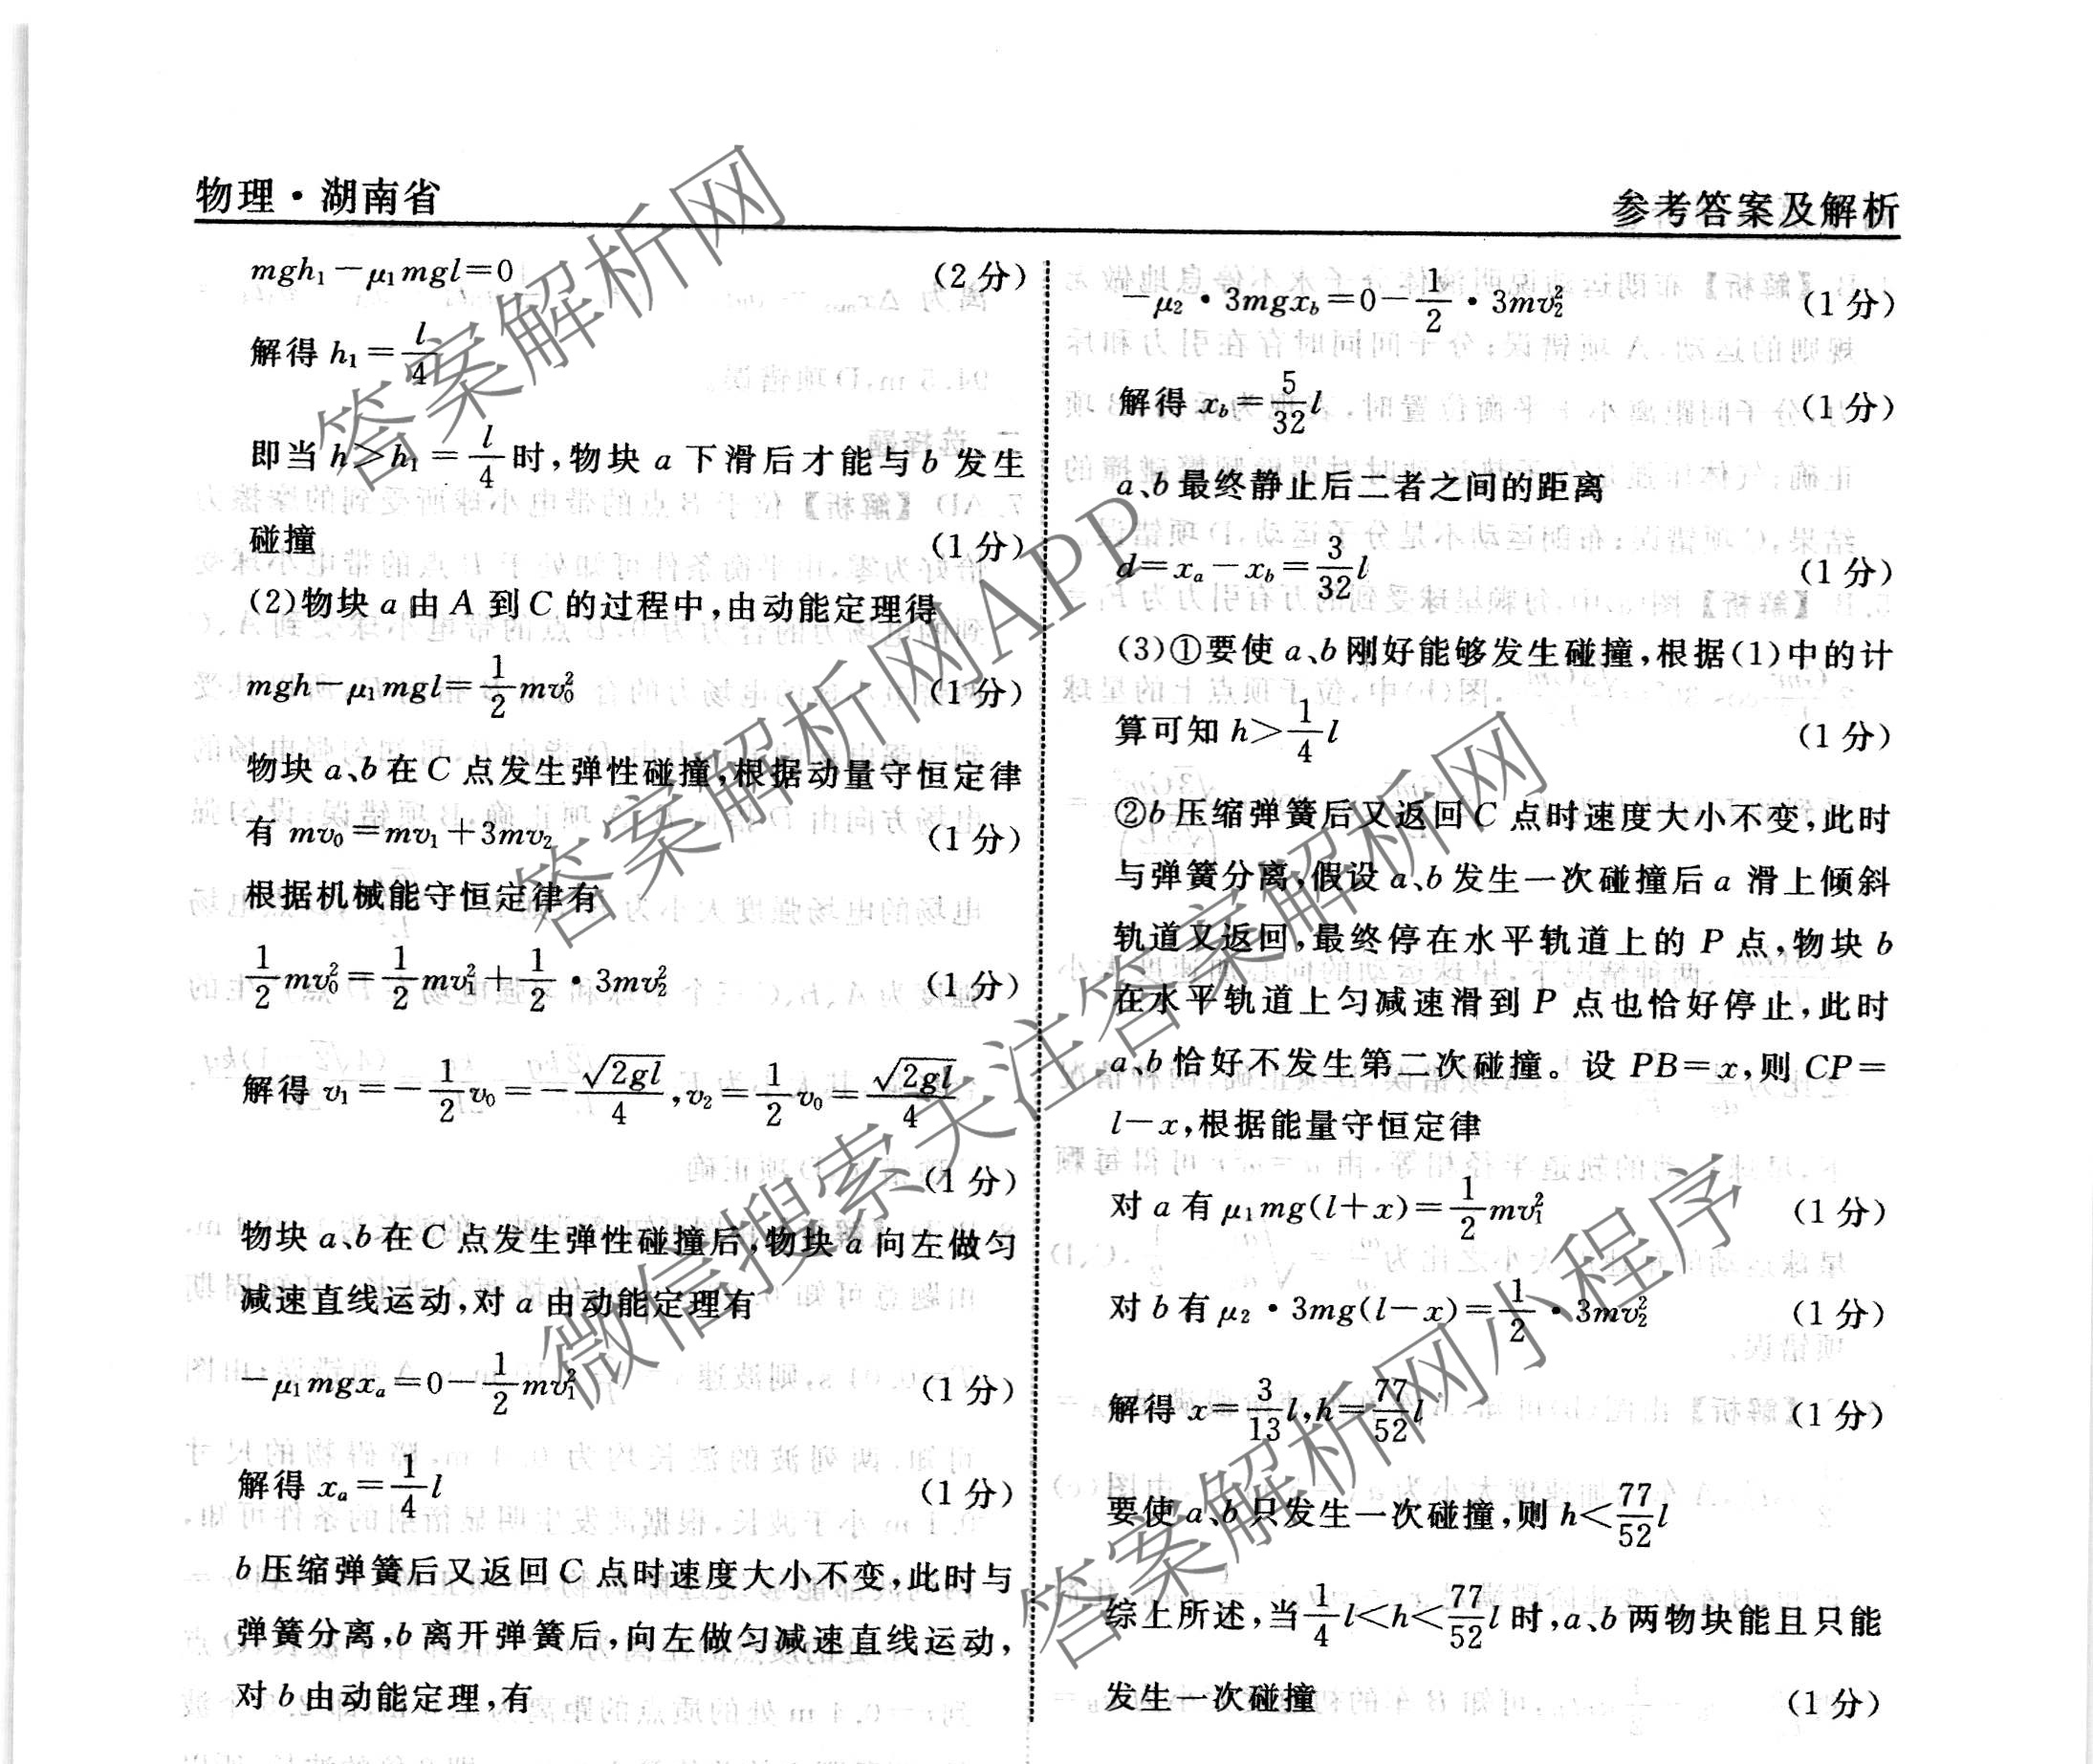 物理·湖南省
参考答案及解析
mgh₁－μ₁mgl＝0 (2分)
解得 h₁＝l/4
即当 h≥h₁＝l/4时,物块 a 下滑后才能与 b 发生
碰撞 (1分)
(2)物块 a 由 A 到 C 的过程中,由动能定理得
mgh－μ₁mgl＝1/2mv₀² (1分)
物块 a、b 在 C 点发生弹性碰撞,根据动量守恒定律
有 mv₀＝mv₁＋3mv₂ (1分)
根据机械能守恒定律有
1/2mv₀²＝1/2mv₁²＋1/2·3mv₂² (1分)
解得 v₁＝－1/2v₀＝－√(2gl)/4,v₂＝1/2v₀＝√(2gl)/4
(1分)
物块 a、b 在 C 点发生弹性碰撞后,物块 a 向左做匀
减速直线运动,对 a 由动能定理有
－μ₁mgxₐ＝0－1/2mv₁² (1分)
解得 xₐ＝1/4l (1分)
b 压缩弹簧后又返回 C 点时速度大小不变,此时与
弹簧分离,b 离开弹簧后,向左做匀减速直线运动,
对 b 由动能定理,有
－μ₂·3mgx_b＝0－1/2·3mv₂² (1分)
解得 x_b＝5/32l (1分)
a、b 最终静止后二者之间的距离
d＝xₐ－x_b＝3/32l (1分)
(3)①要使 a、b 刚好能够发生碰撞,根据(1)中的计
算可知 h＞1/4l (1分)
②b 压缩弹簧后又返回 C 点时速度大小不变,此时
与弹簧分离,假设 a、b 发生一次碰撞后 a 滑上倾斜
轨道又返回,最终停在水平轨道上的 P 点,物块 b
在水平轨道上匀减速滑到 P 点也恰好停止,此时
a、b 恰好不发生第二次碰撞。设 PB＝x,则 CP＝
l－x,根据能量守恒定律
对 a 有 μ₁mg(l＋x)＝1/2mv₁² (1分)
对 b 有 μ₂·3mg(l－x)＝1/2·3mv₂² (1分)
解得 x＝3/13l,h＝77/52l (1分)
要使 a、b 只发生一次碰撞,则 h＜77/52l
综上所述,当1/4l＜h＜77/52l 时,a、b 两物块能且只能
发生一次碰撞 (1分)
答案解析网
答案解析网APP
微信搜索关注答案解析网
答案解析网小程序